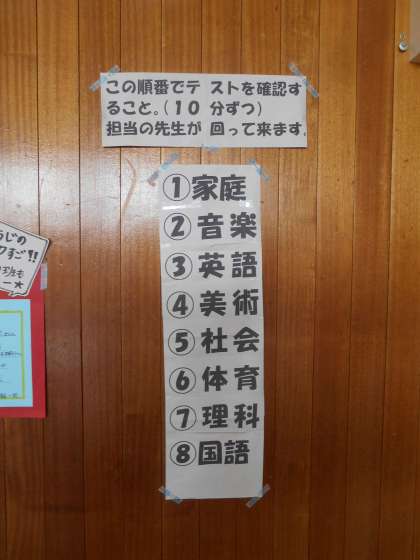 この順番でテストを確認す
ること。(10分ずつ)
担当の先生が回って来ます。
①家庭
②音楽
③英語
④美術
⑤社会
⑥体育
⑦理科
⑧国語